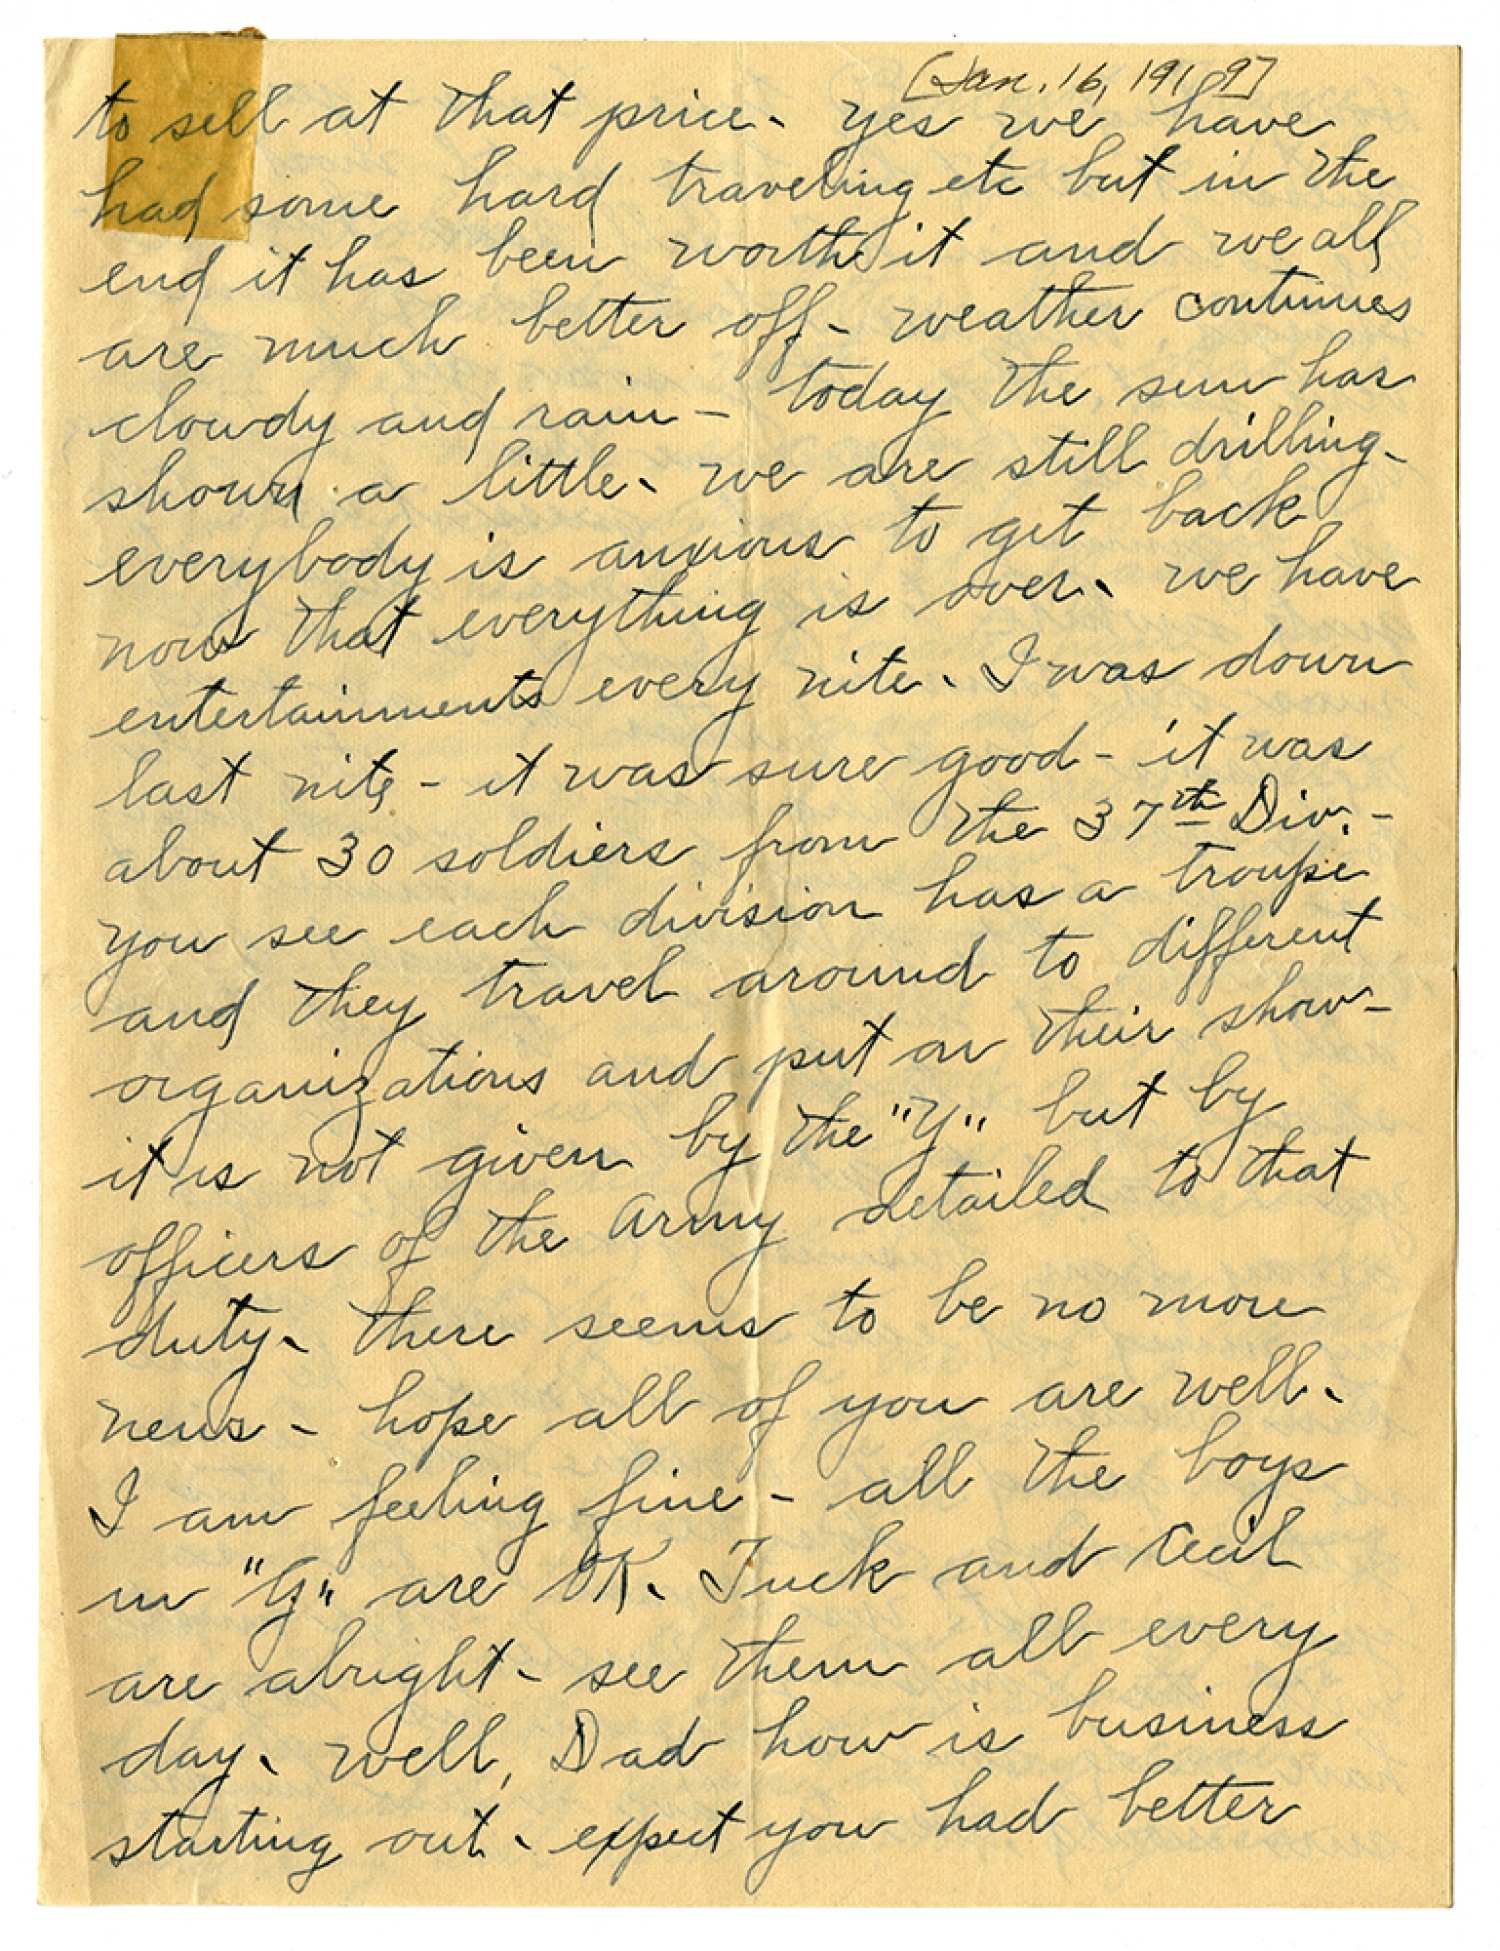 [Jan. 16, 1919]
to sell at that price. Yes we have
had some hard traveling etc but in the
end it has been worth it and we all
are much better off. weather continues
cloudy and rain - today the sun has
shown a little. we are still drilling.
everybody is anxious to get back
now that everything is over. we have
entertainments every nite. I was down
last nite - it was sure good - it was
about 30 soldiers from the 37th Div. -
you see each division has a troupe
and they travel around to different
organizations and put on their show -
it is not given by the "Y" but by
officers of the Army detailed to that
duty. there seems to be no more
news - hope all of you are well.
I am feeling fine - all the boys
in "G" are OK. Tuck and Cecil
are alright - see them all every
day. well, Dad how is business
starting out. expect you had better